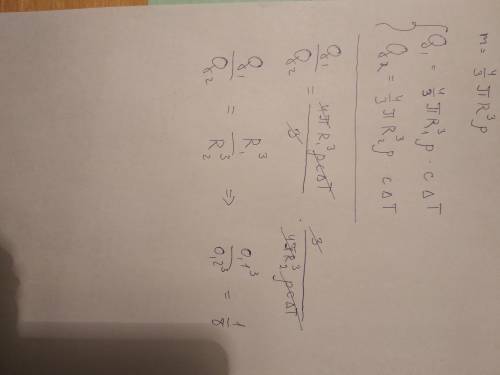 m = 4/3 πR³ρ
{ Q₁ = 4/3 πR₁³ρ · c ΔT
Q₂ = 4/3 πR₂³ρ c ΔT
Q₁/Q₂ = 4πR₁³ρcΔT/3 · 3/4πR₂³ρcΔT
Q₁/Q₂ = R₁³/R₂³ ⇒ 0,1³/0,2³ = 1/8